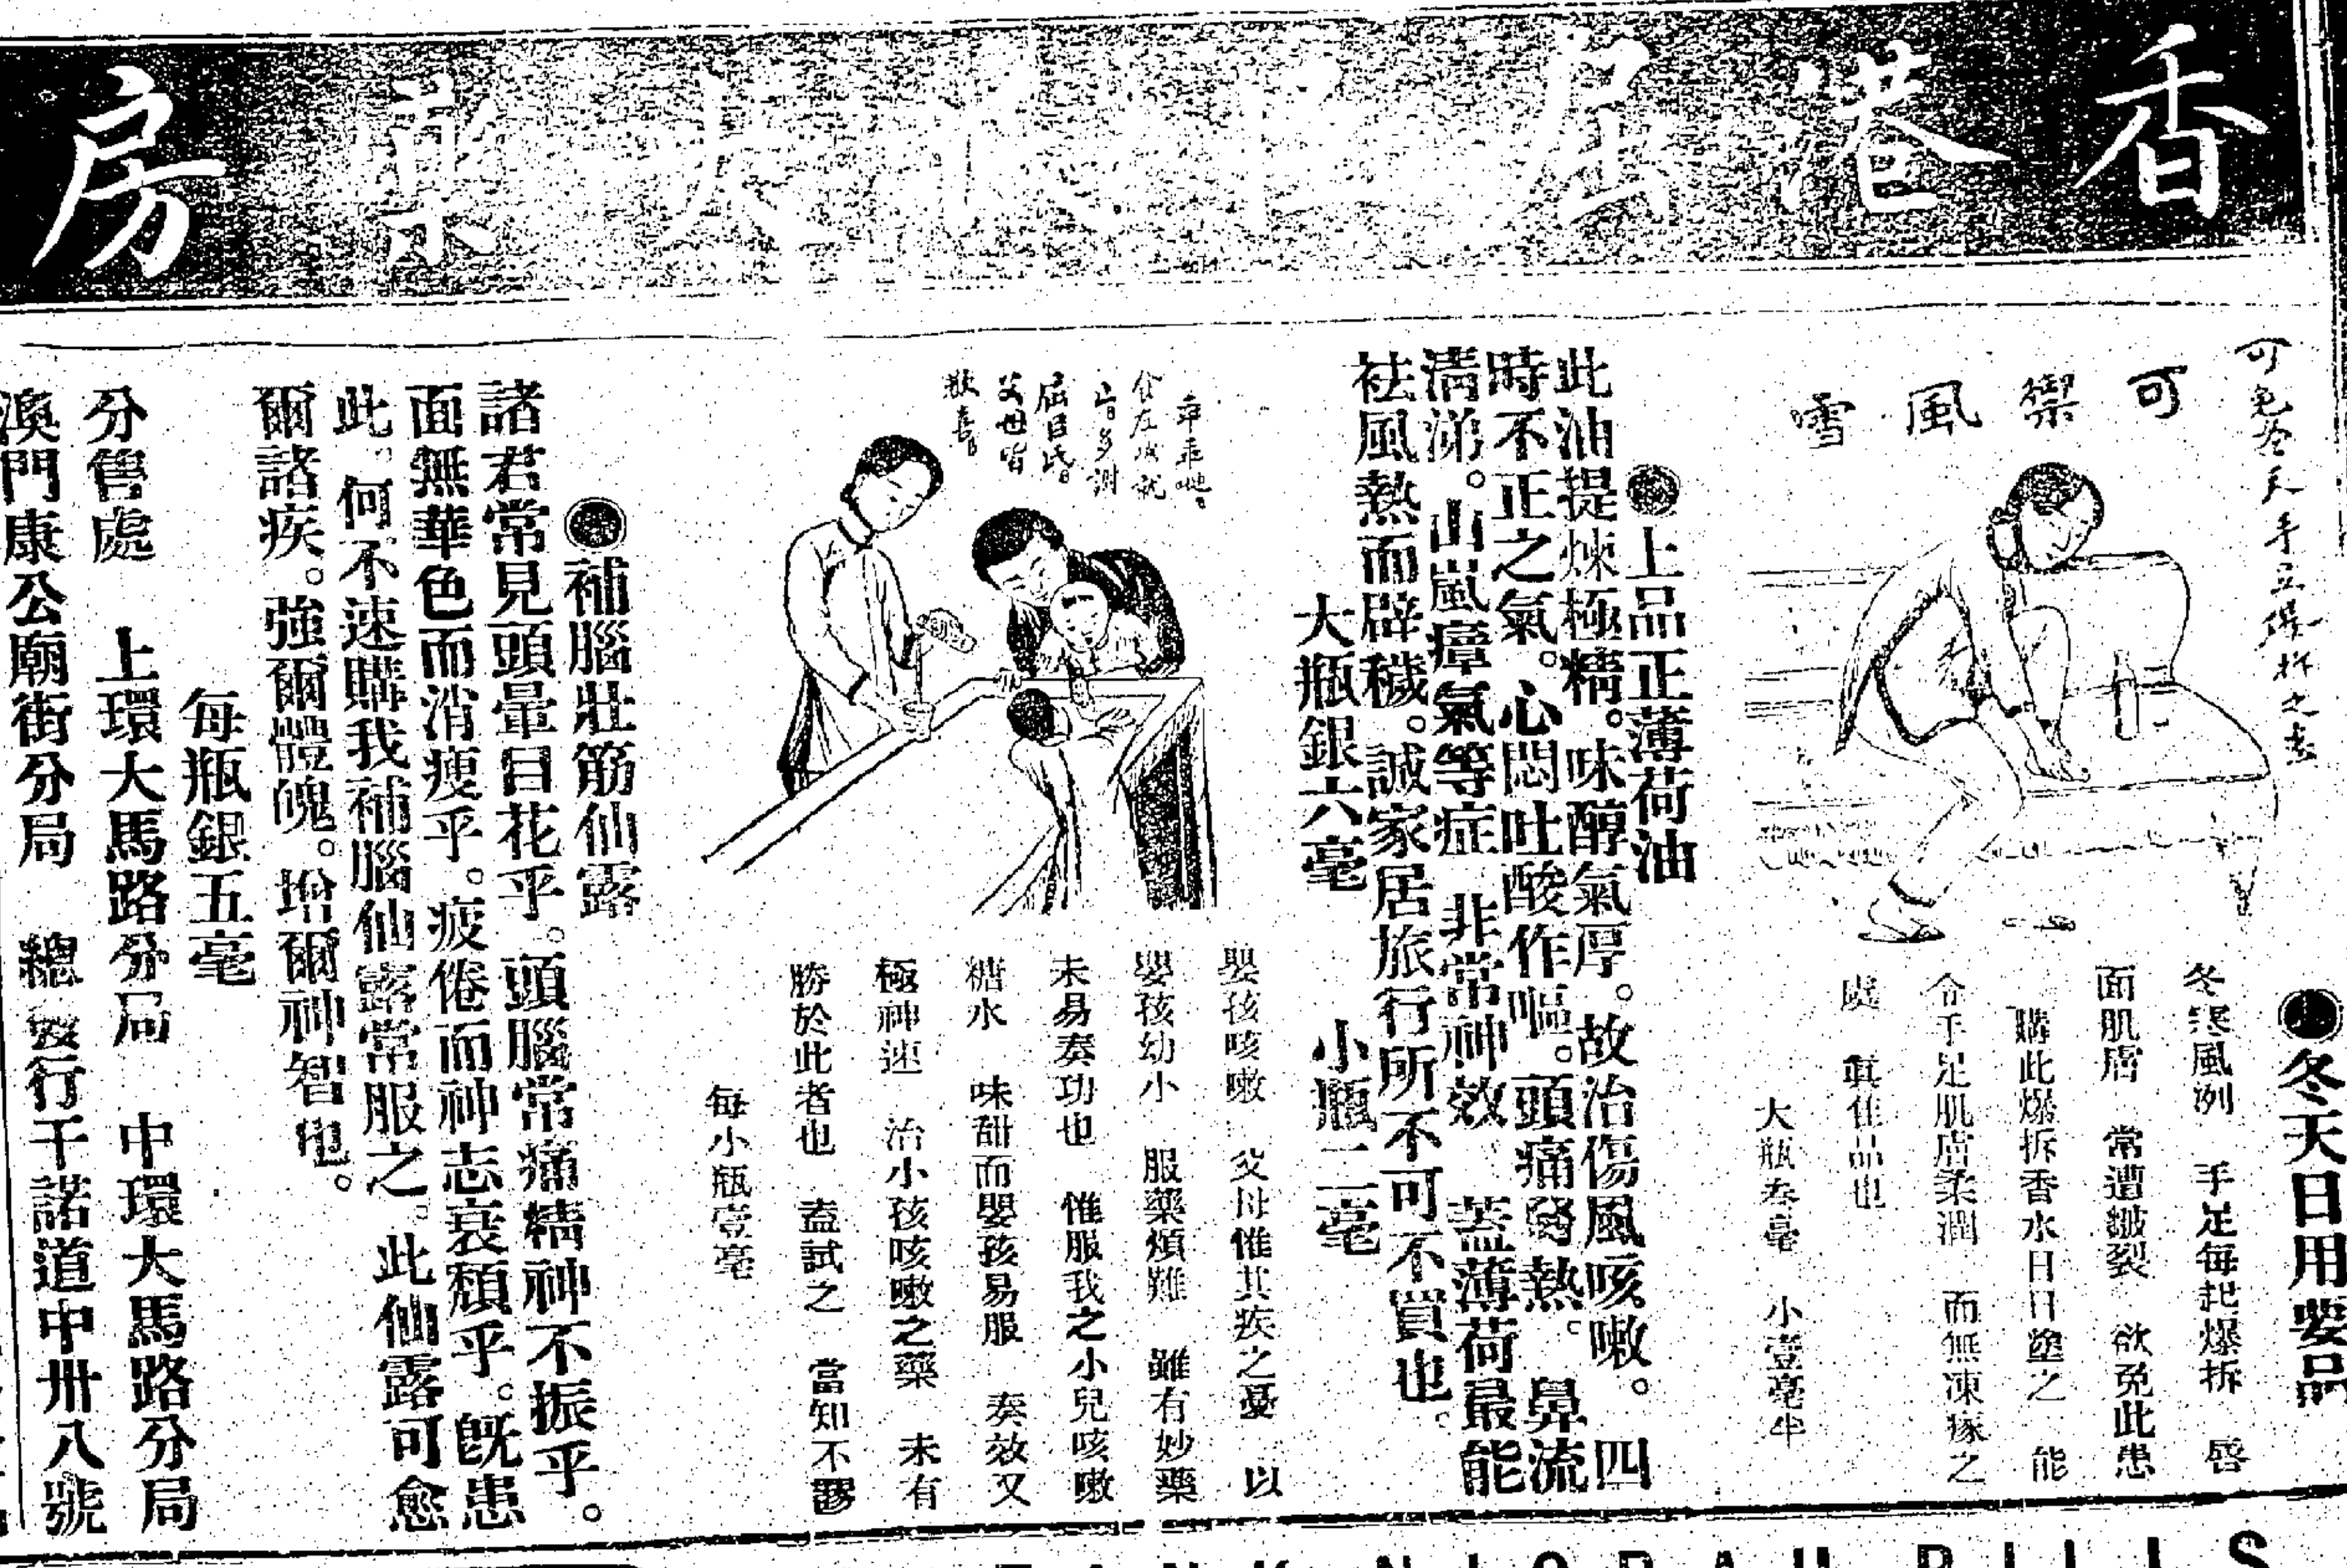 香港屈臣氏大藥房
可免冬天手足爆拆之患
可禦風雪
冬天日用要品
冬寒風冽 手足每起爆拆 唇
面肌膚 常遭皴裂 欲免此患
購此爆拆香水日日塗之 能
令手足肌膚柔潤 而無凍瘃之
處 眞佳品也
大瓶叁毫 小壹毫半
上品正薄荷油
此油提煉極精。味醇氣厚。故治傷風咳嗽。四
時不正之氣。心悶吐酸作嘔。頭痛發熱。鼻流
清涕。山嵐瘴氣等症 非常神效 蓋薄荷最能
祛風熱而辟穢。誠家居旅行所不可不買也。
大瓶銀六毫 小瓶二毫
乖乖哋。
食左咳就
止。多謝
屈臣氏。
父母皆
歡喜。
嬰孩咳嗽 父母惟其疾之憂 以
嬰孩幼小 服藥煩難 雖有妙藥
未易奏功也 惟服我之小兒咳嗽
糖水 味甜而嬰孩易服 奏效又
極神速 治小孩咳嗽之藥 未有
勝於此者也 盍試之 當知不謬
每小瓶壹毫
補腦壯筋仙露
諸君常見頭暈目花乎。頭腦常痛精神不振乎。
面無華色而消瘦乎。疲倦而神志衰頹乎。旣患
此。何不速購我補腦仙露常服之。此仙露可愈
爾諸疾。強爾體魄。增爾神智也。
每瓶銀五毫
分售處 上環大馬路分局 中環大馬路分局
澳門康公廟街分局 總發行干諾道中卅八號